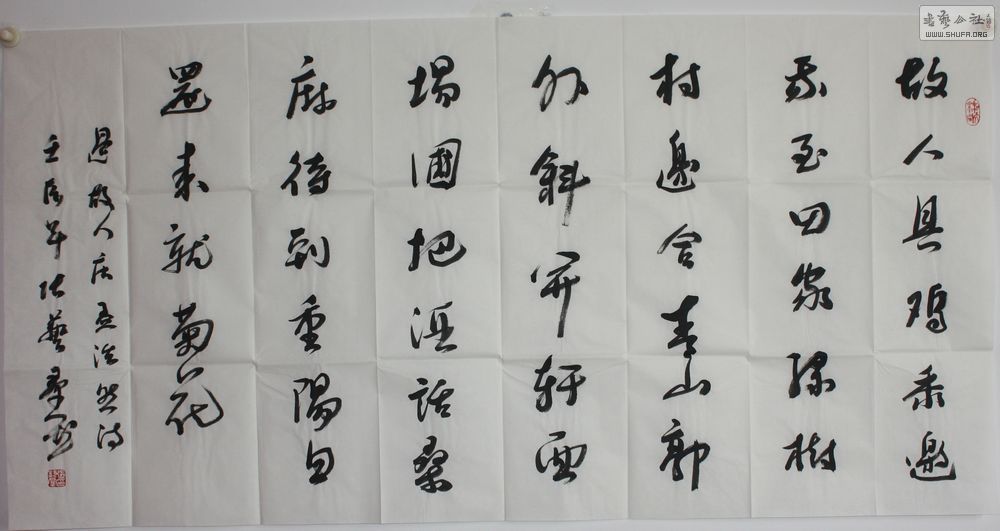 故人具鸡黍邀
我至田家绿樹
村邊合青山郭
外斜开轩面
場圃把酒話桑
麻待到重陽日
還来就菊花
過故人庄孟浩然诗
壬辰年张藝群书
書藝公社
WWW.SHUFA.ORG